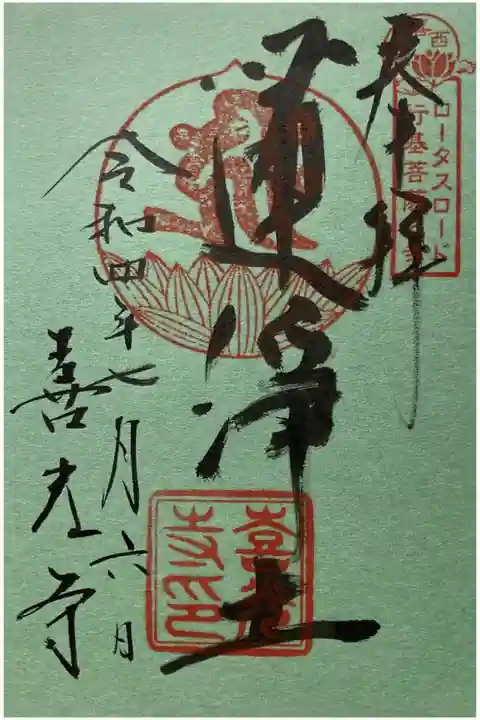 西
ロータスロード
行基菩
奉拝
蓮浄土
令和四年七月六日
喜光寺